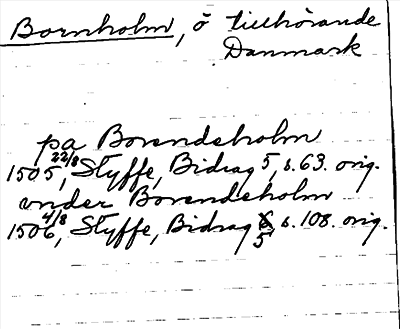 Bornholm, ö tillhörande
Danmark
pa Borendeholm
1505 22/8, Styffe, Bidrag 5, s. 63. orig.
vnder Borendeholm
1506 4/8, Styffe, Bidrag 5 s. 108. orig.